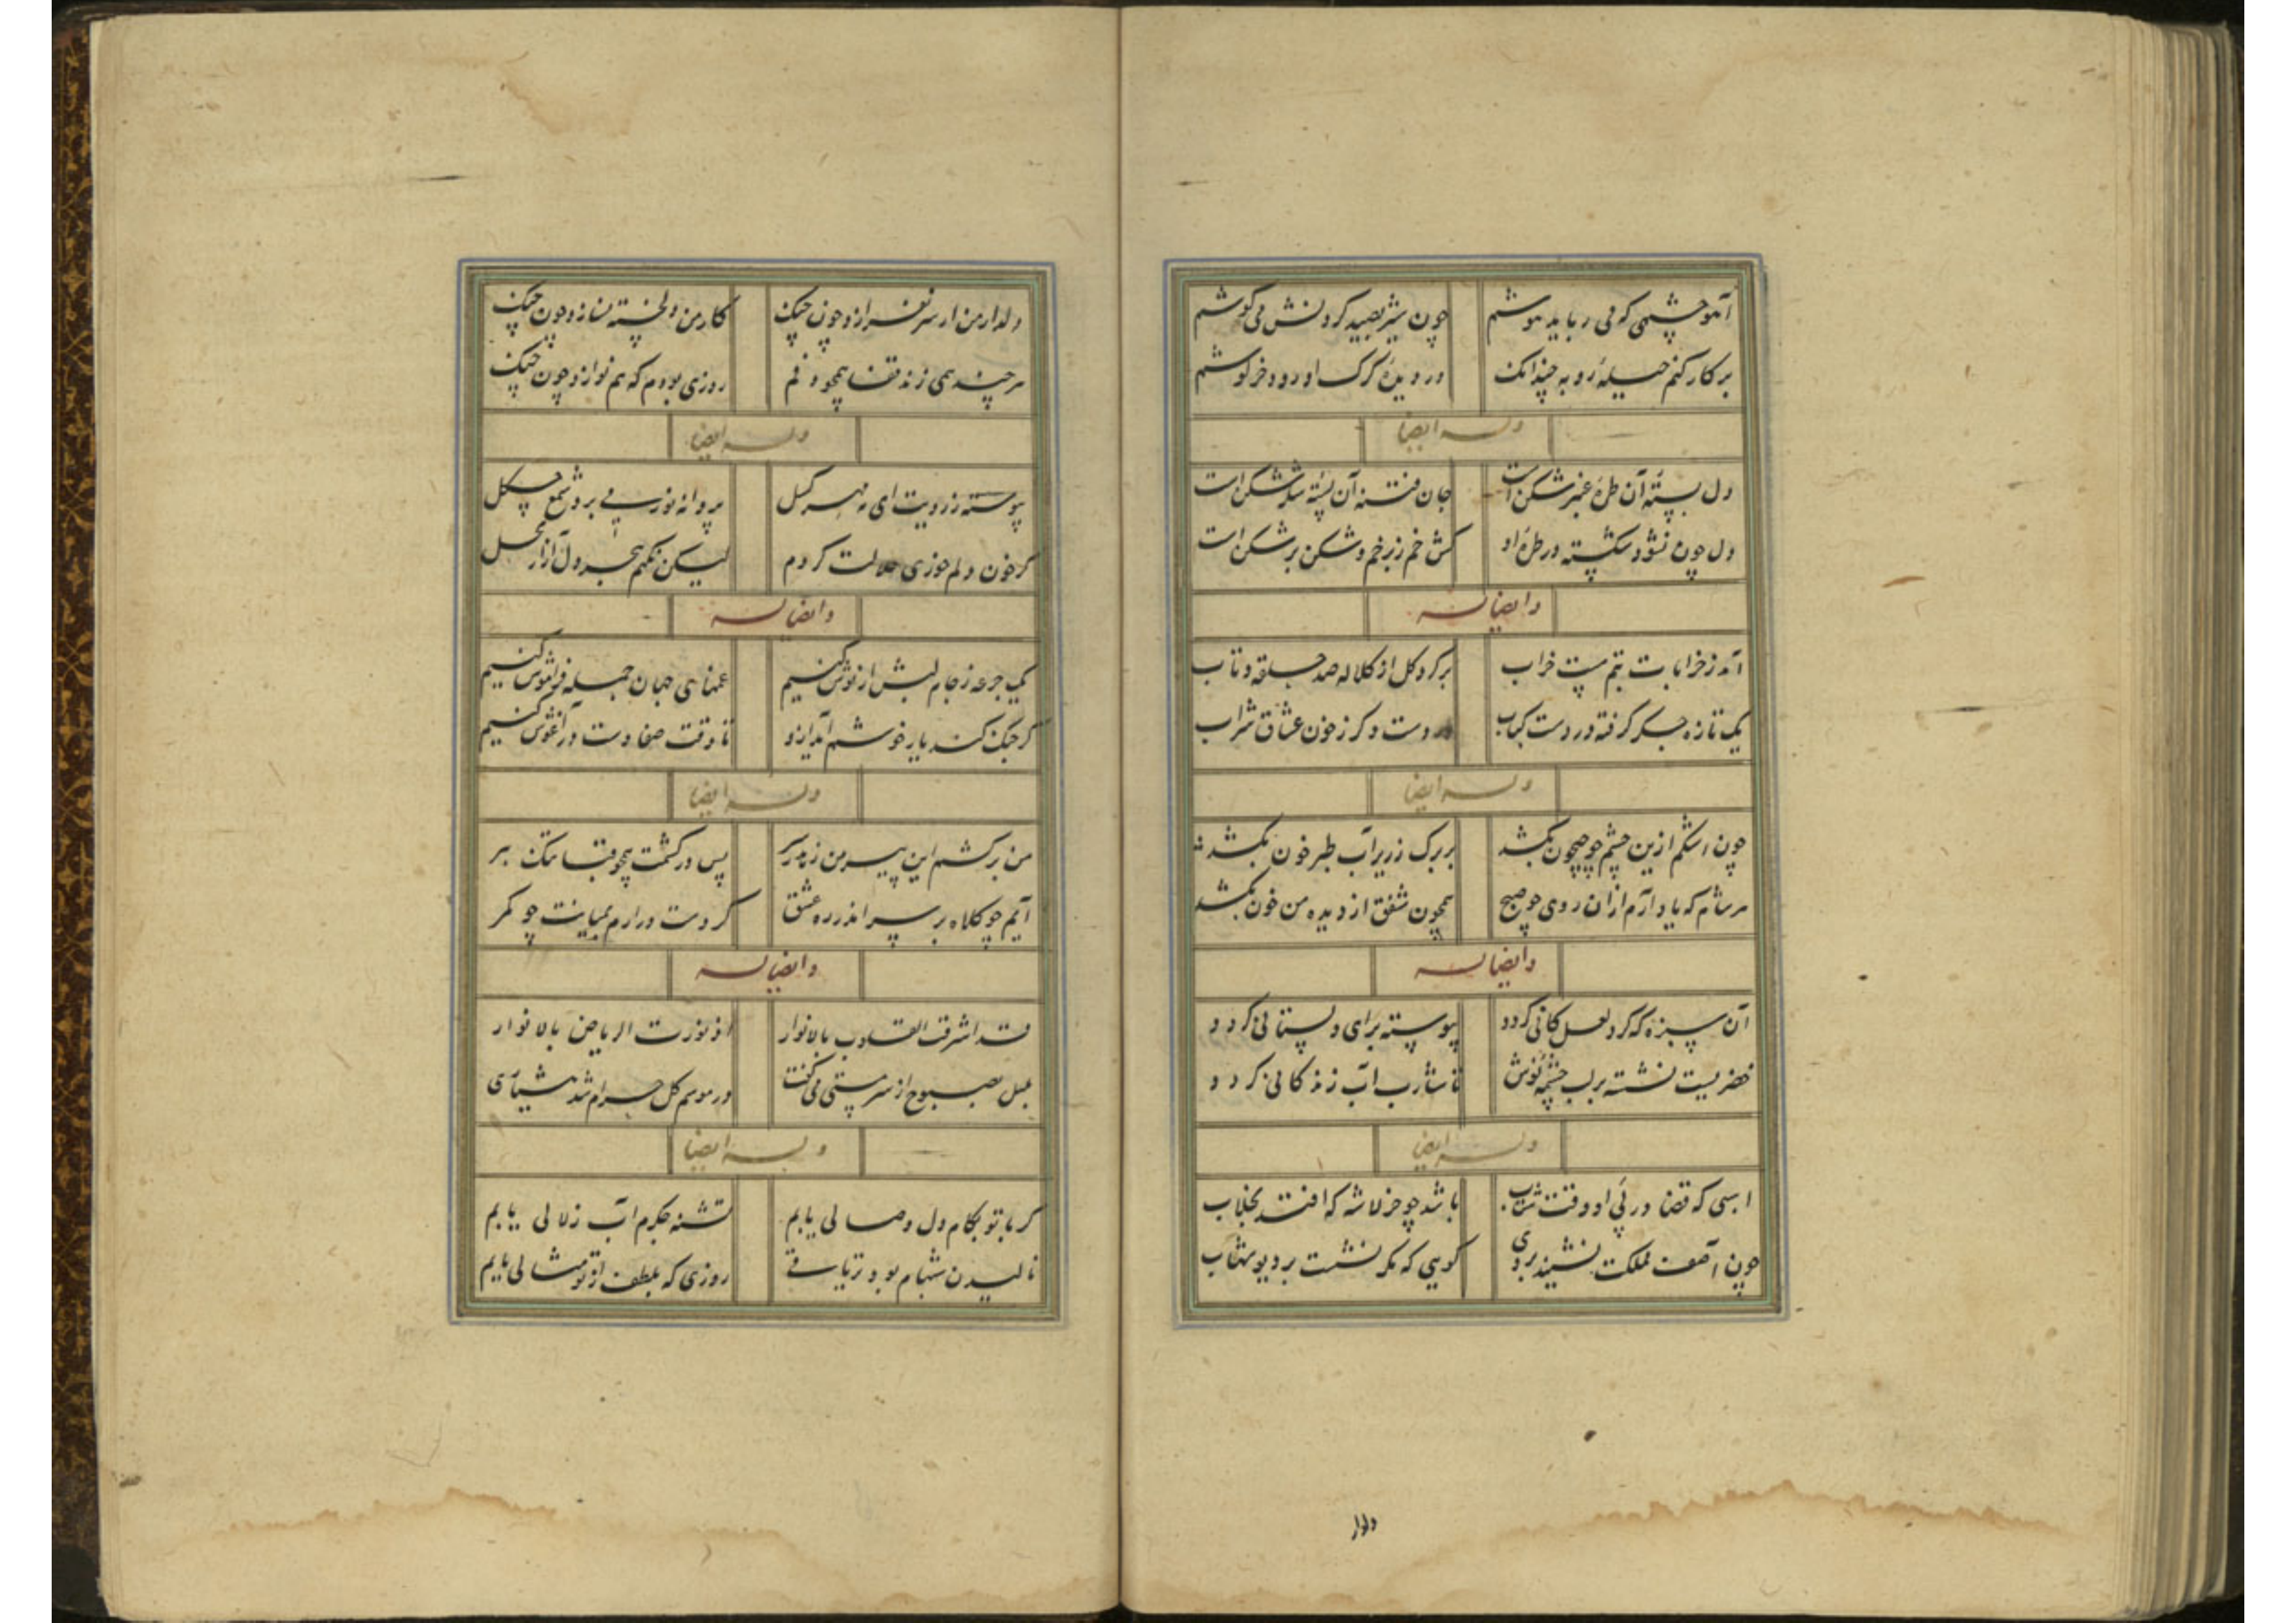 آهو چشمی که می رباید هوشم چون شیر بصید کردنش می کوشم
برکار کنم حیلهٔ روبه چندانک در دیدهٔ گرگ او رود خرگوشم
وله ایضا
دل بستهٔ آن طرهٔ عنبر شکن است جان فتنهٔ آن پستهٔ شکر شکن است
دل چون نشود شکسته در طرهٔ او کش خم زبر خم و شکن بر شکن است
وایضا له
آمد ز خرابات بتم مست خراب بر گرد گل از کلاله صد حلقه و تاب
یک تازه جگر گرفته در دست کباب دست دگر ز خون عشاق شراب
وله ایضا
چون اشکم ازین چشم چو جیحون بکشد بر برگ زریر آب طبر خون بکشد
هر شام که یاد آرم ازان روی چو صبح همچون شفق از دیده من خون بکشد
وایضا له
آن سبزه که گرد لعل کانی گردد پیوسته برای دلستانی گردد
خضریست نشسته بر لب چشمهٔ نوش تا شارب آب زندگانی گردد
وله ایضا
اسبی که قضا در پی او وقت شتاب باشد چو خر لاشه که افتد بخلاب
چون آصف مملکت نشیند بروی گویی که مگر نشست بر دیو شهاب
دلدار
دلدار من ار سر نفرازد چون چنگ کار من دلخسته نسازد چون چنگ
هر چند همی زند قفا همچو دفم روزی بودم که هم نوازد چون چنگ
وله ایضا
پیوسته ز رویت ای مه مهر گسل پروانه نور می برد شمع چگل
گر خون دلم خوری حلالت کردم لیکن نکنم بهجر دل آزار بحل
وایضا له
یک جرعه ز جام لبش ار نوش کنیم غمهای جهان جمله فراموش کنیم
گر جنگ کند یار خوشم آید ازو تا وقت صفا دست در آغوش کنیم
وله ایضا
من برکشم این پیرهن زهد ز سر پس در کشمت همچو قبا تنگ ببر
آیم چو کلاه بر سر اندر ره عشق گر دست در آرم بمیانت چو کمر
وایضا له
قد اشرقت القلوب بالانوار اذ نورت الریاض بالانوار
بلبل بصبوح از سر مستی می گفت در موسم گل حرام شد هشیاری
وله ایضا
گر با تو بکام دل وصالی یابم تشنه جگرم آب زلالی یابم
نالیدن شبهام بود روزی که بلطف از تو مثالی یابم